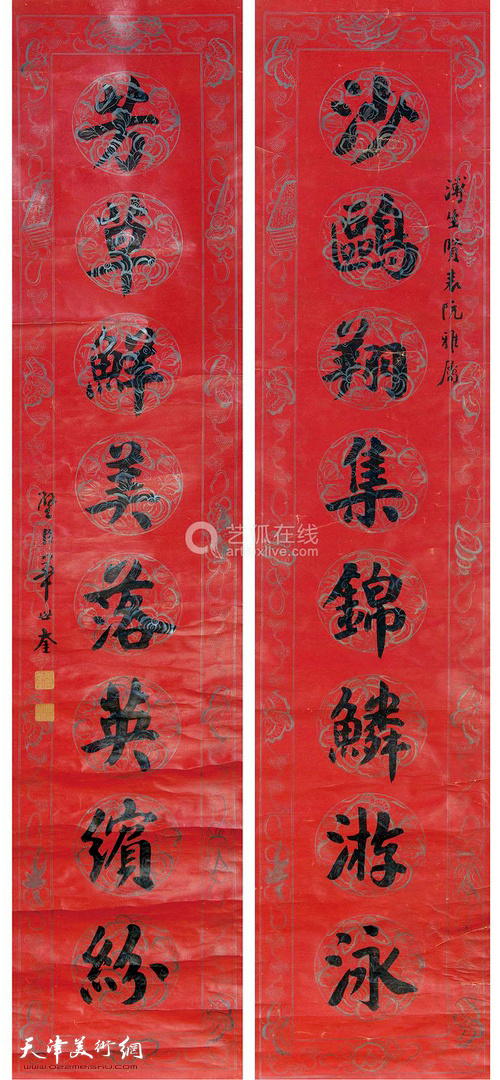 沙鷗翔集錦鱗游泳
溥生賢表阮雅屬
芳草鮮美落英繽紛
華世奎
艺狐在线
artfoxlive.com
天津美術網
www.022meishu.com